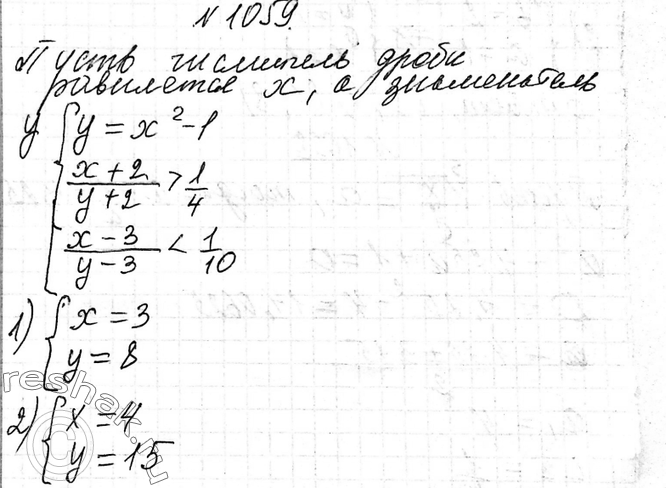 №1059.
Пусть числитель дроби
равняется x, а знаменатель
y { y = x² - 1
(x + 2)/(y + 2) > 1/4
(x - 3)/(y - 3) < 1/10
1) { x = 3
y = 8
2) { x = 4
y = 15
reshak.ru